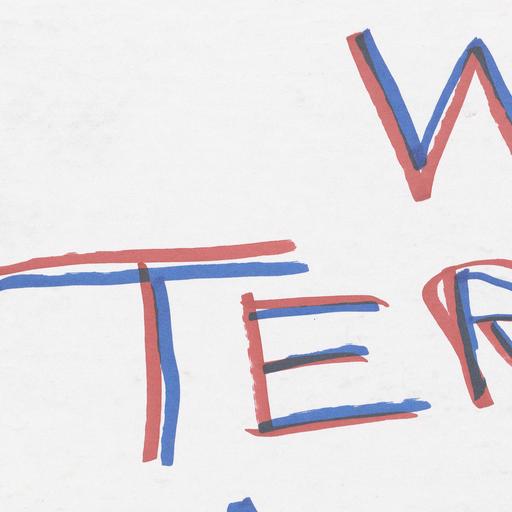 W
TER